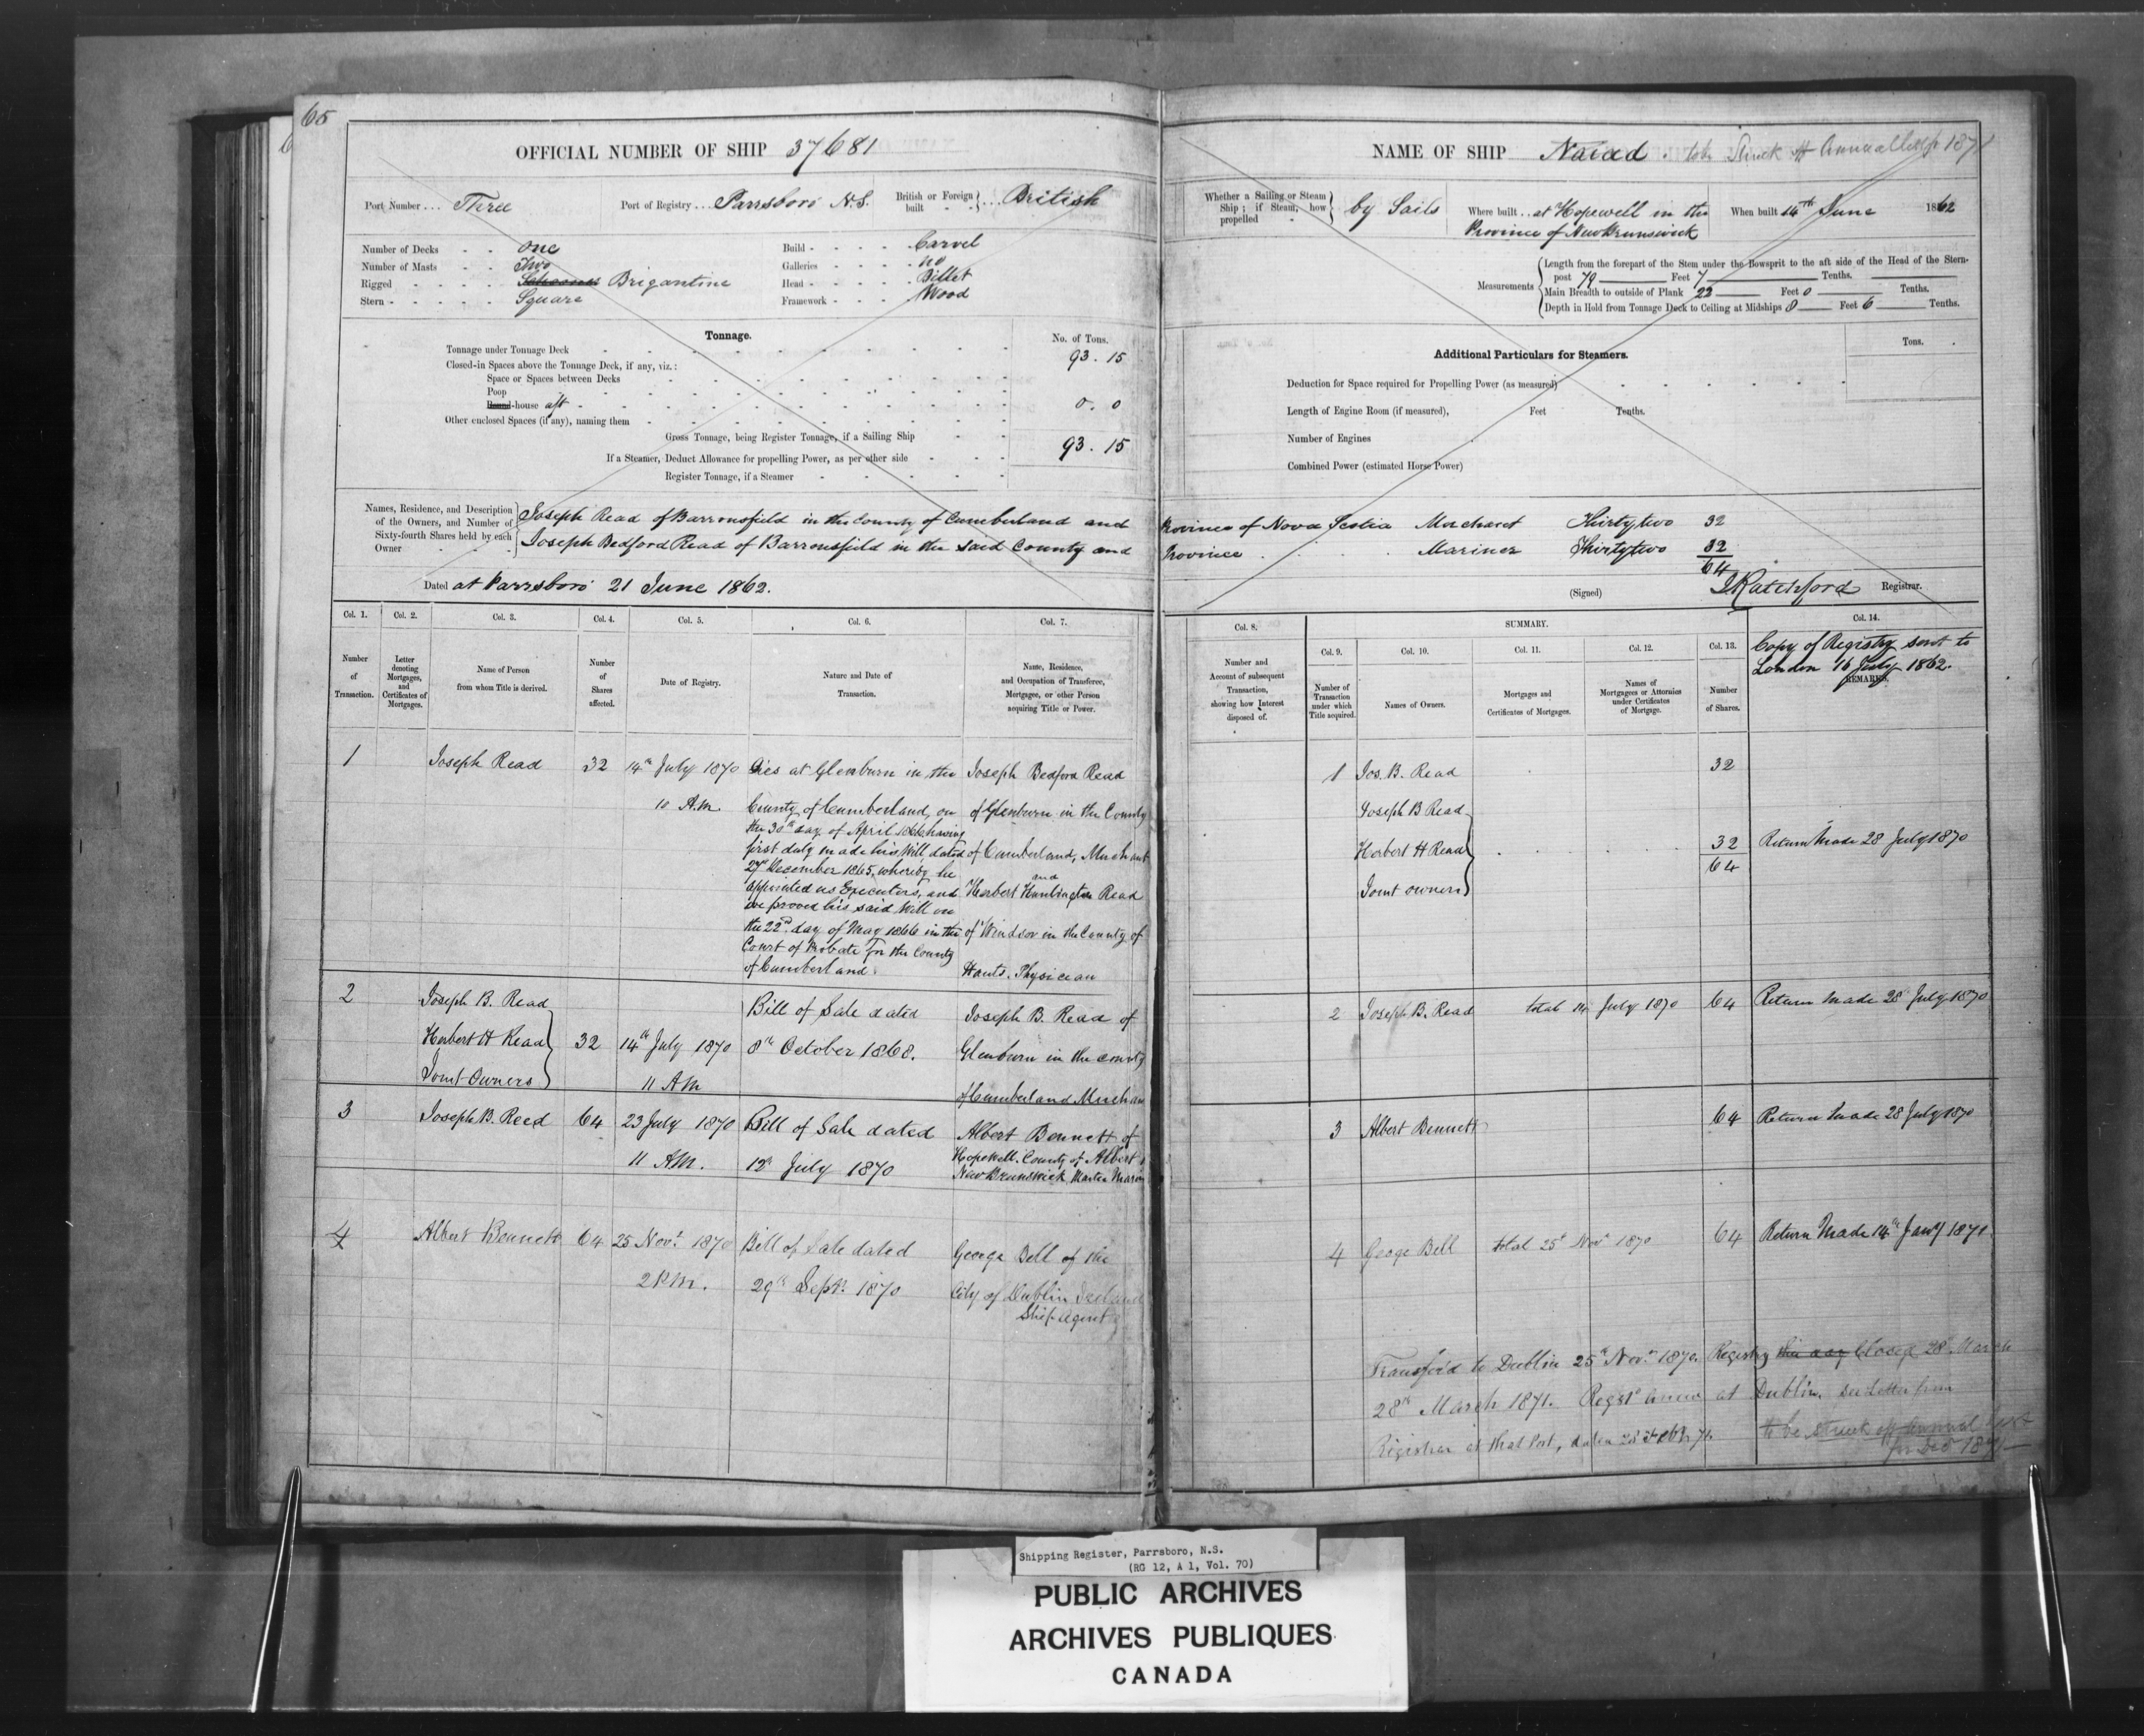 65
OFFICIAL NUMBER OF SHIP 37681
Port Number ... Three
Port of Registry ... Parrsboro N.S.
British or Foreign built ... British
Number of Decks - - one
Number of Masts - - Two
Rigged - - - - Schooner Brigantine
Stern - - - - Square
Build - - - - Carvel
Galleries - - - - no
Head - - - - Billet
Framework - - - Wood
Tonnage.
No. of Tons.
Tonnage under Tonnage Deck 93. 15
Closed-in Spaces above the Tonnage Deck, if any, viz.:
Space or Spaces between Decks
Poop
Round-house aft - 0. 0
Other enclosed Spaces (if any), naming them
Gross Tonnage, being Register Tonnage, if a Sailing Ship 93. 15
If a Steamer, Deduct Allowance for propelling Power, as per other side
Register Tonnage, if a Steamer
NAME OF SHIP Naiad. Struck off Annual List for 1871
Whether a Sailing or Steam Ship; if Steam, how propelled by Sails
Where built .. at Hopewell in the
Province of New Brunswick
When built 14th June 1862
Measurements
Length from the forepart of the Stem under the Bowsprit to the aft side of the Head of the Stern-
post 79 Feet 7 Tenths.
Main Breadth to outside of Plank 22 Feet 0 Tenths.
Depth in Hold from Tonnage Deck to Ceiling at Midships 8 Feet 6 Tenths.
Additional Particulars for Steamers.
Tons.
Deduction for Space required for Propelling Power (as measured)
Length of Engine Room (if measured), Feet Tenths.
Number of Engines
Combined Power (estimated Horse Power)
Names, Residence, and Description
of the Owners, and Number of
Sixty-fourth Shares held by each
Owner
Joseph Read of Barronsfield in the County of Cumberland and Province of Nova Scotia Merchant Thirty two 32
Joseph Bedford Read of Barronsfield in the said County and Province Mariner Thirty two 32
64
Dated at Parrsboro 21 June 1862.
(Signed) J Ratchford Registrar.
Col. 1.
Number
of
Transaction.
Col. 2.
Letter
denoting
Mortgages,
and
Certificates of
Mortgages.
Col. 3.
Name of Person
from whom Title is derived.
Col. 4.
Number
of
Shares
affected.
Col. 5.
Date of Registry.
Col. 6.
Nature and Date of
Transaction.
Col. 7.
Name, Residence,
and Occupation of Transferee,
Mortgagee, or other Person
acquiring Title or Power.
Col. 8.
Number and
Account of subsequent
Transaction,
showing how Interest
disposed of.
SUMMARY.
Col. 9.
Number of
Transaction
under which
Title acquired.
Col. 10.
Names of Owners.
Col. 11.
Mortgages and
Certificates of Mortgages.
Col. 12.
Names of
Mortgagees or Attornies
under Certificates
of Mortgage.
Col. 13.
Number
of Shares.
Col. 14.
Copy of Registry sent to
London 16 July 1862.
REMARKS.
1
Joseph Read
32
14th July 1870
10 A.M.
Dies at Glenburn in the
County of Cumberland, on
the 30th day of April 1866 having
first duly made his Will, dated
27th December 1865, whereby he
appointed us Executors, and
we proved his said Will on
the 22nd day of May 1866 in the
Court of Probate for the County
of Cumberland.
Joseph Bedford Read
of Glenburn in the County
of Cumberland, Merchant
and
Herbert Huntington Read
of Windsor in the County of
Hants. Physician
1 Jos. B. Read 32
Joseph B Read
Herbert H Read 32
64
Joint owners
Return Made 28 July 1870
2
Joseph B. Read
Herbert H Read
Joint Owners
32
14th July 1870
11 AM
Bill of Sale dated
8th October 1868.
Joseph B. Read of
Glenburn in the county
of Cumberland
2 Joseph B. Read total 14 July 1870 64 Return Made 28th July 1870
3
Joseph B. Reed
64
23 July 1870
11 AM.
Bill of Sale dated
12th July 1870
Albert Bennett of
Hopewell. County of Albert
New Brunswick, Master
3 Albert Bennett 64 Return Made 28 July 1870
4
Albert Bennett
64
25 Novr. 1870
2 P.M.
Bill of Sale dated
29th Septr. 1870
George Bell of the
City of Dublin Ireland
Ship Agent
4 George Bell total 25th Novr 1870 64 Return Made 14th Jany 1871
Transfer'd to Dublin 25th Novr. 1870. Registry this day Closed 28th March
28th March 1871. Regist anew at Dublin. see Letter from
Registrar at that Port, dated
to be struck off Annual List
for Dec 1871
Shipping Register, Parrsboro, N.S.
(RG 12, A 1, Vol. 70)
PUBLIC ARCHIVES
ARCHIVES PUBLIQUES
CANADA